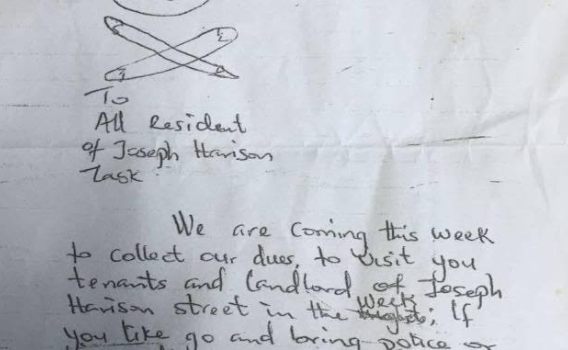 To
All Resident
of Joseph Harison
Task:
We are coming this week
to collect our dues, to visit you
tenants and landlord of Joseph
Harison street in the week; If
you like go and bring police or